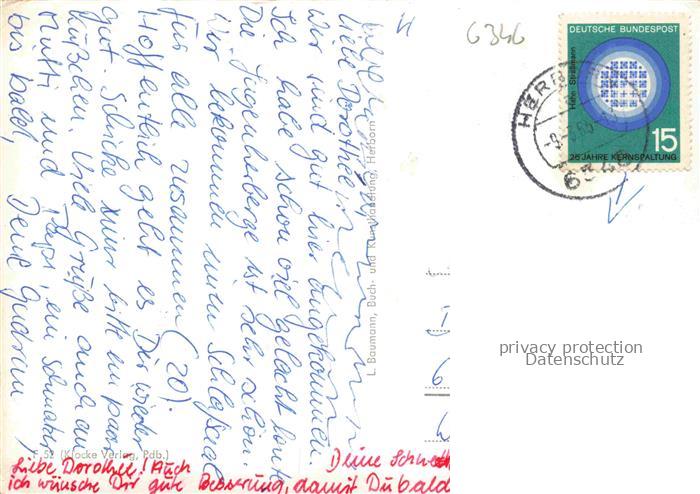 Liebe Dorothee!
Wir sind gut hier angekommen.
Ich habe schon viel gelacht heute
Die Jugendherberge ist sehr schön.
Wir bekommen einen Schlafsaal
für alle zusammen (20).
Hoffentlich geht es Dir wieder
gut. Schicke mir bitte ein paar
Küßchen. Viele Grüße auch an
Mutti und Papi, ein Schmatzer,
bis bald, Deine Gudrun
L. Baumann, Buch- und Kunsthandlung, Herborn
F 52 (Klocke Verlag, Pdb.)
Liebe Dorothee! Auch
ich wünsche Dir gute Besserung, damit Du bald
Deine Schwe
6346
DEUTSCHE BUNDESPOST
Hahn Straßmann
15
25 JAHRE KERNSPALTUNG
HERB
6348
privacy protection
Datenschutz